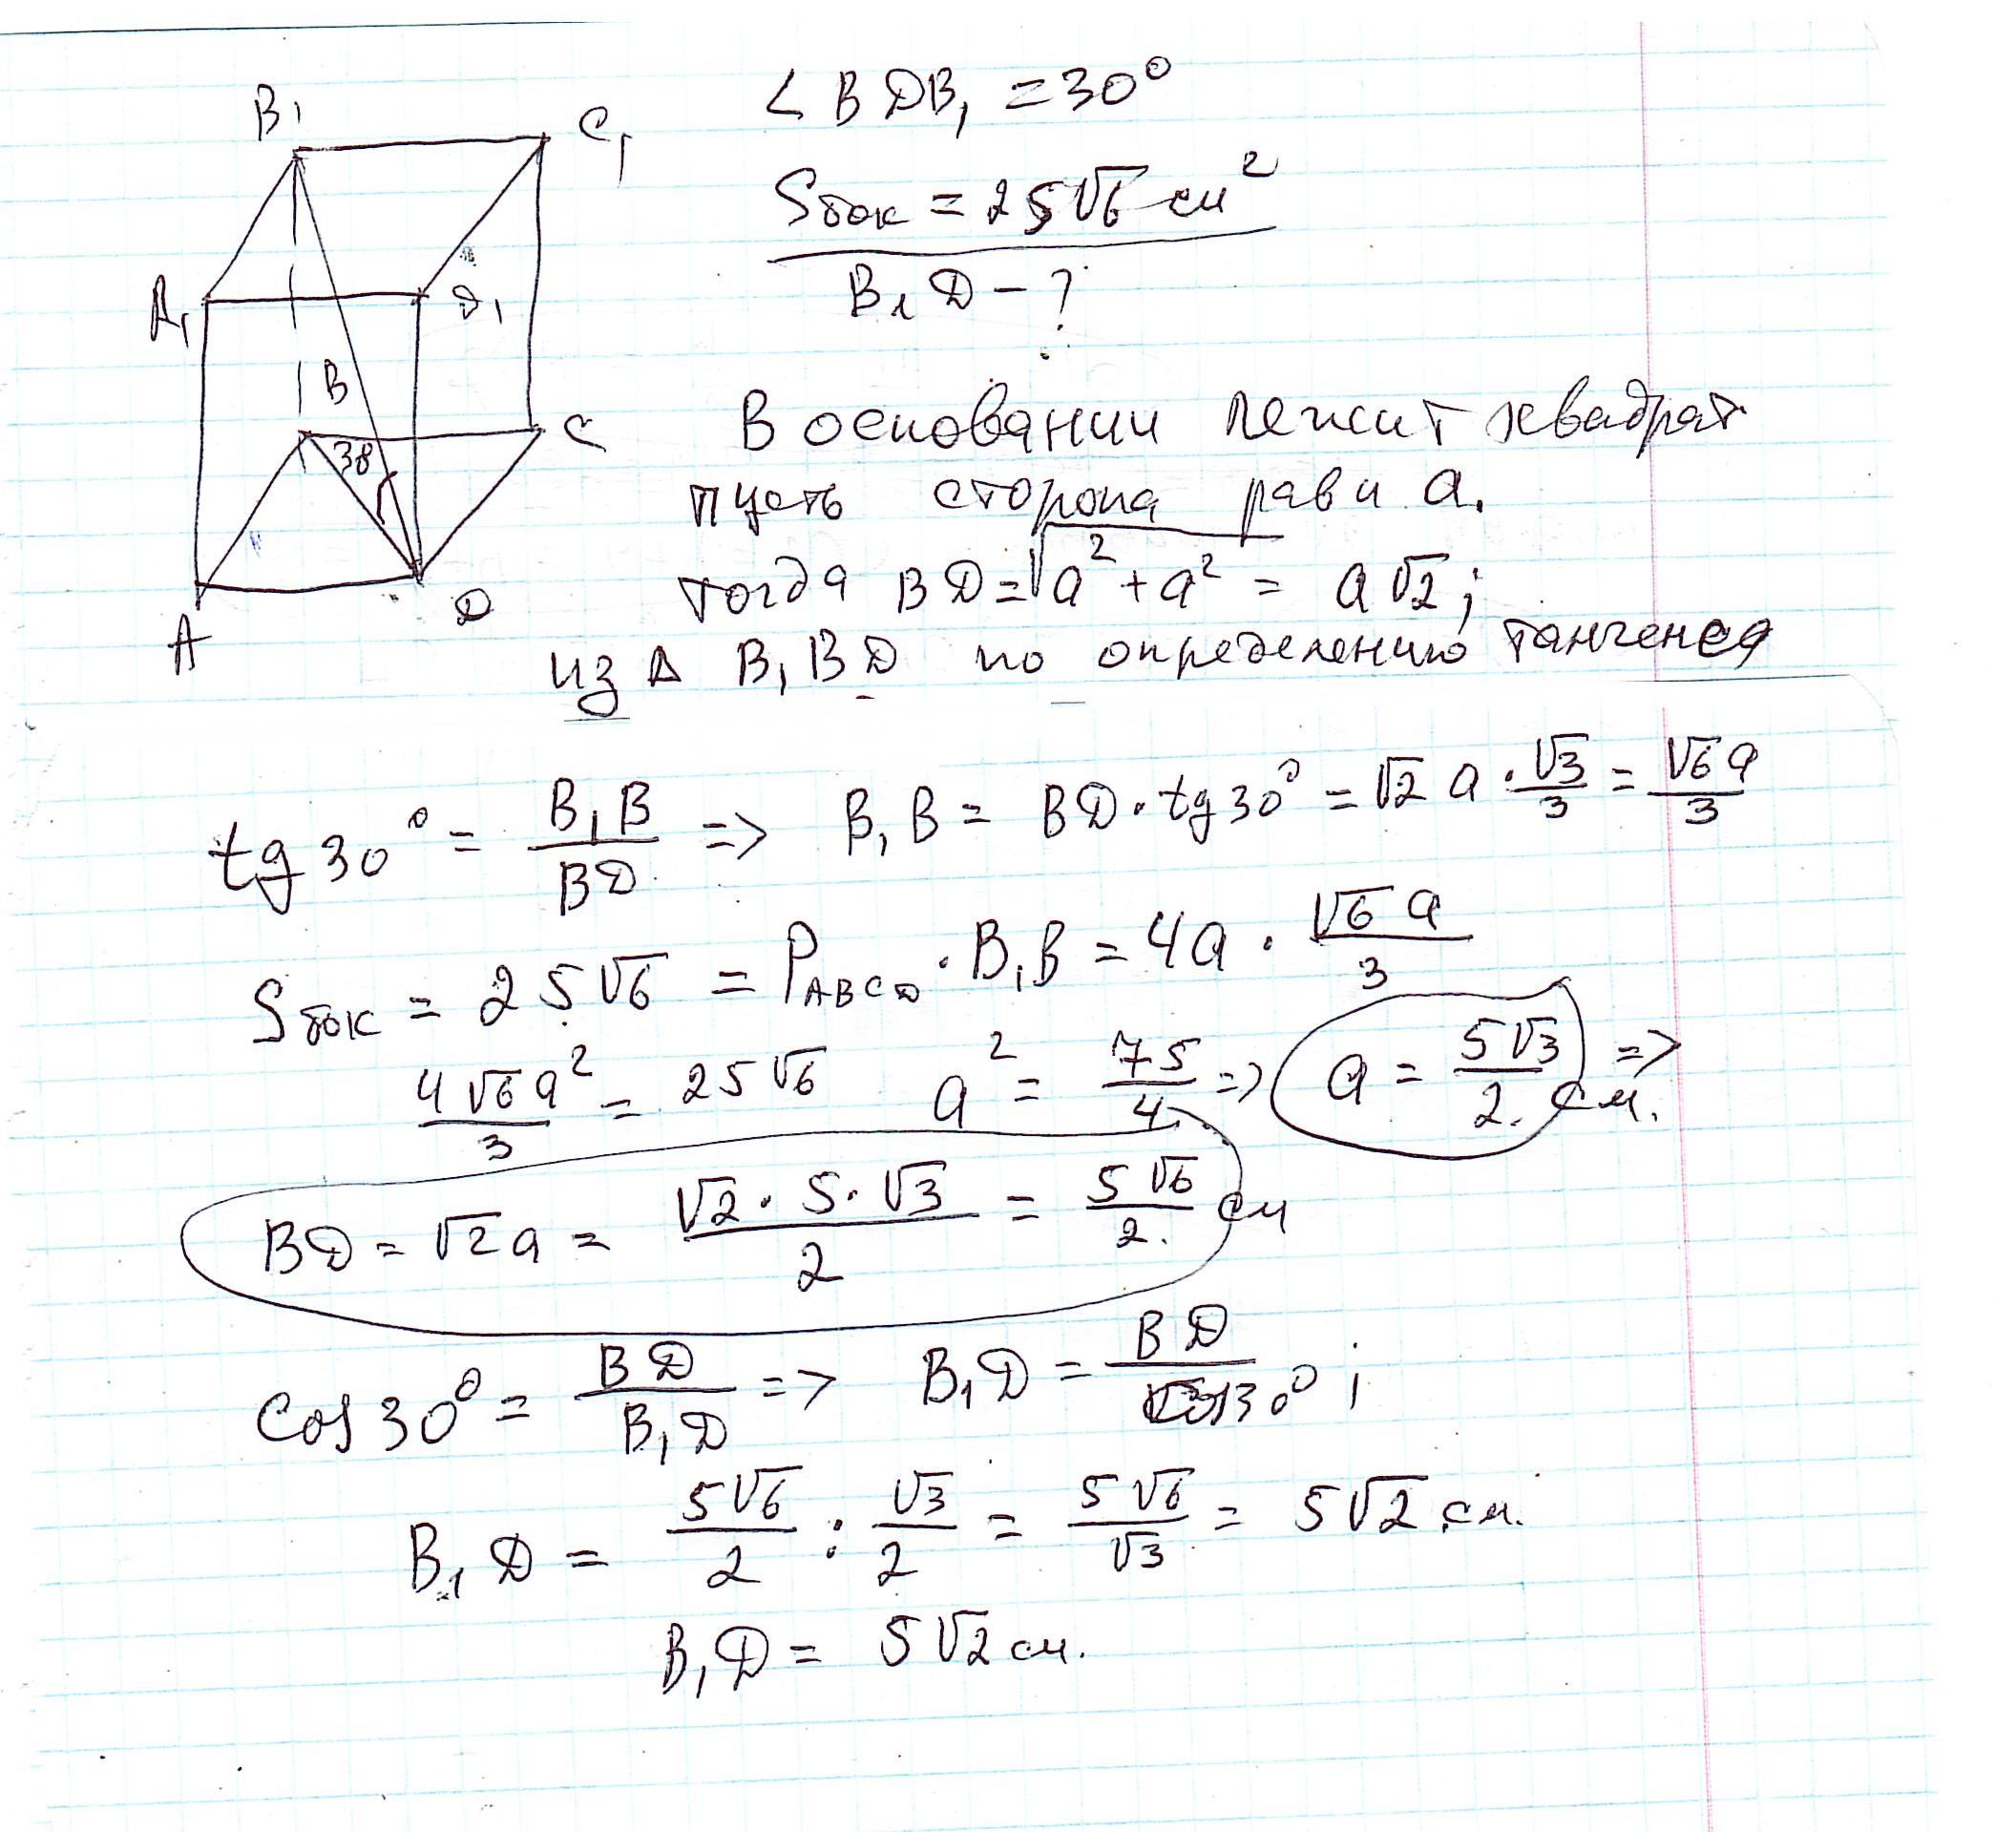 B₁
C₁
A₁
D₁
B
C
30
A
D
∠ BDB₁ = 30°
Sбок = 25√6 см²
B₁D - ?
В основании лежит квадрат
пусть сторона равн a.
тогда BD = √a² + a² = a√2;
из Δ B₁BD по определению тангенса
tg 30° = B₁B/BD => B₁B = BD · tg 30° = √2 a · √3/3 = √6a/3
Sбок = 25√6 = P_ABCD · B₁B = 4a · √6 a/3
4√6a²/3 = 25√6 a² = 75/4 => a = 5√3/2 см. =>
BD = √2a = √2 · 5 · √3/2 = 5√6/2 см
cos 30° = BD/B₁D => B₁D = BD/cos30° ;
B₁D = 5√6/2 : √3/2 = 5√6/√3 = 5√2 см.
B₁D = 5√2 см.